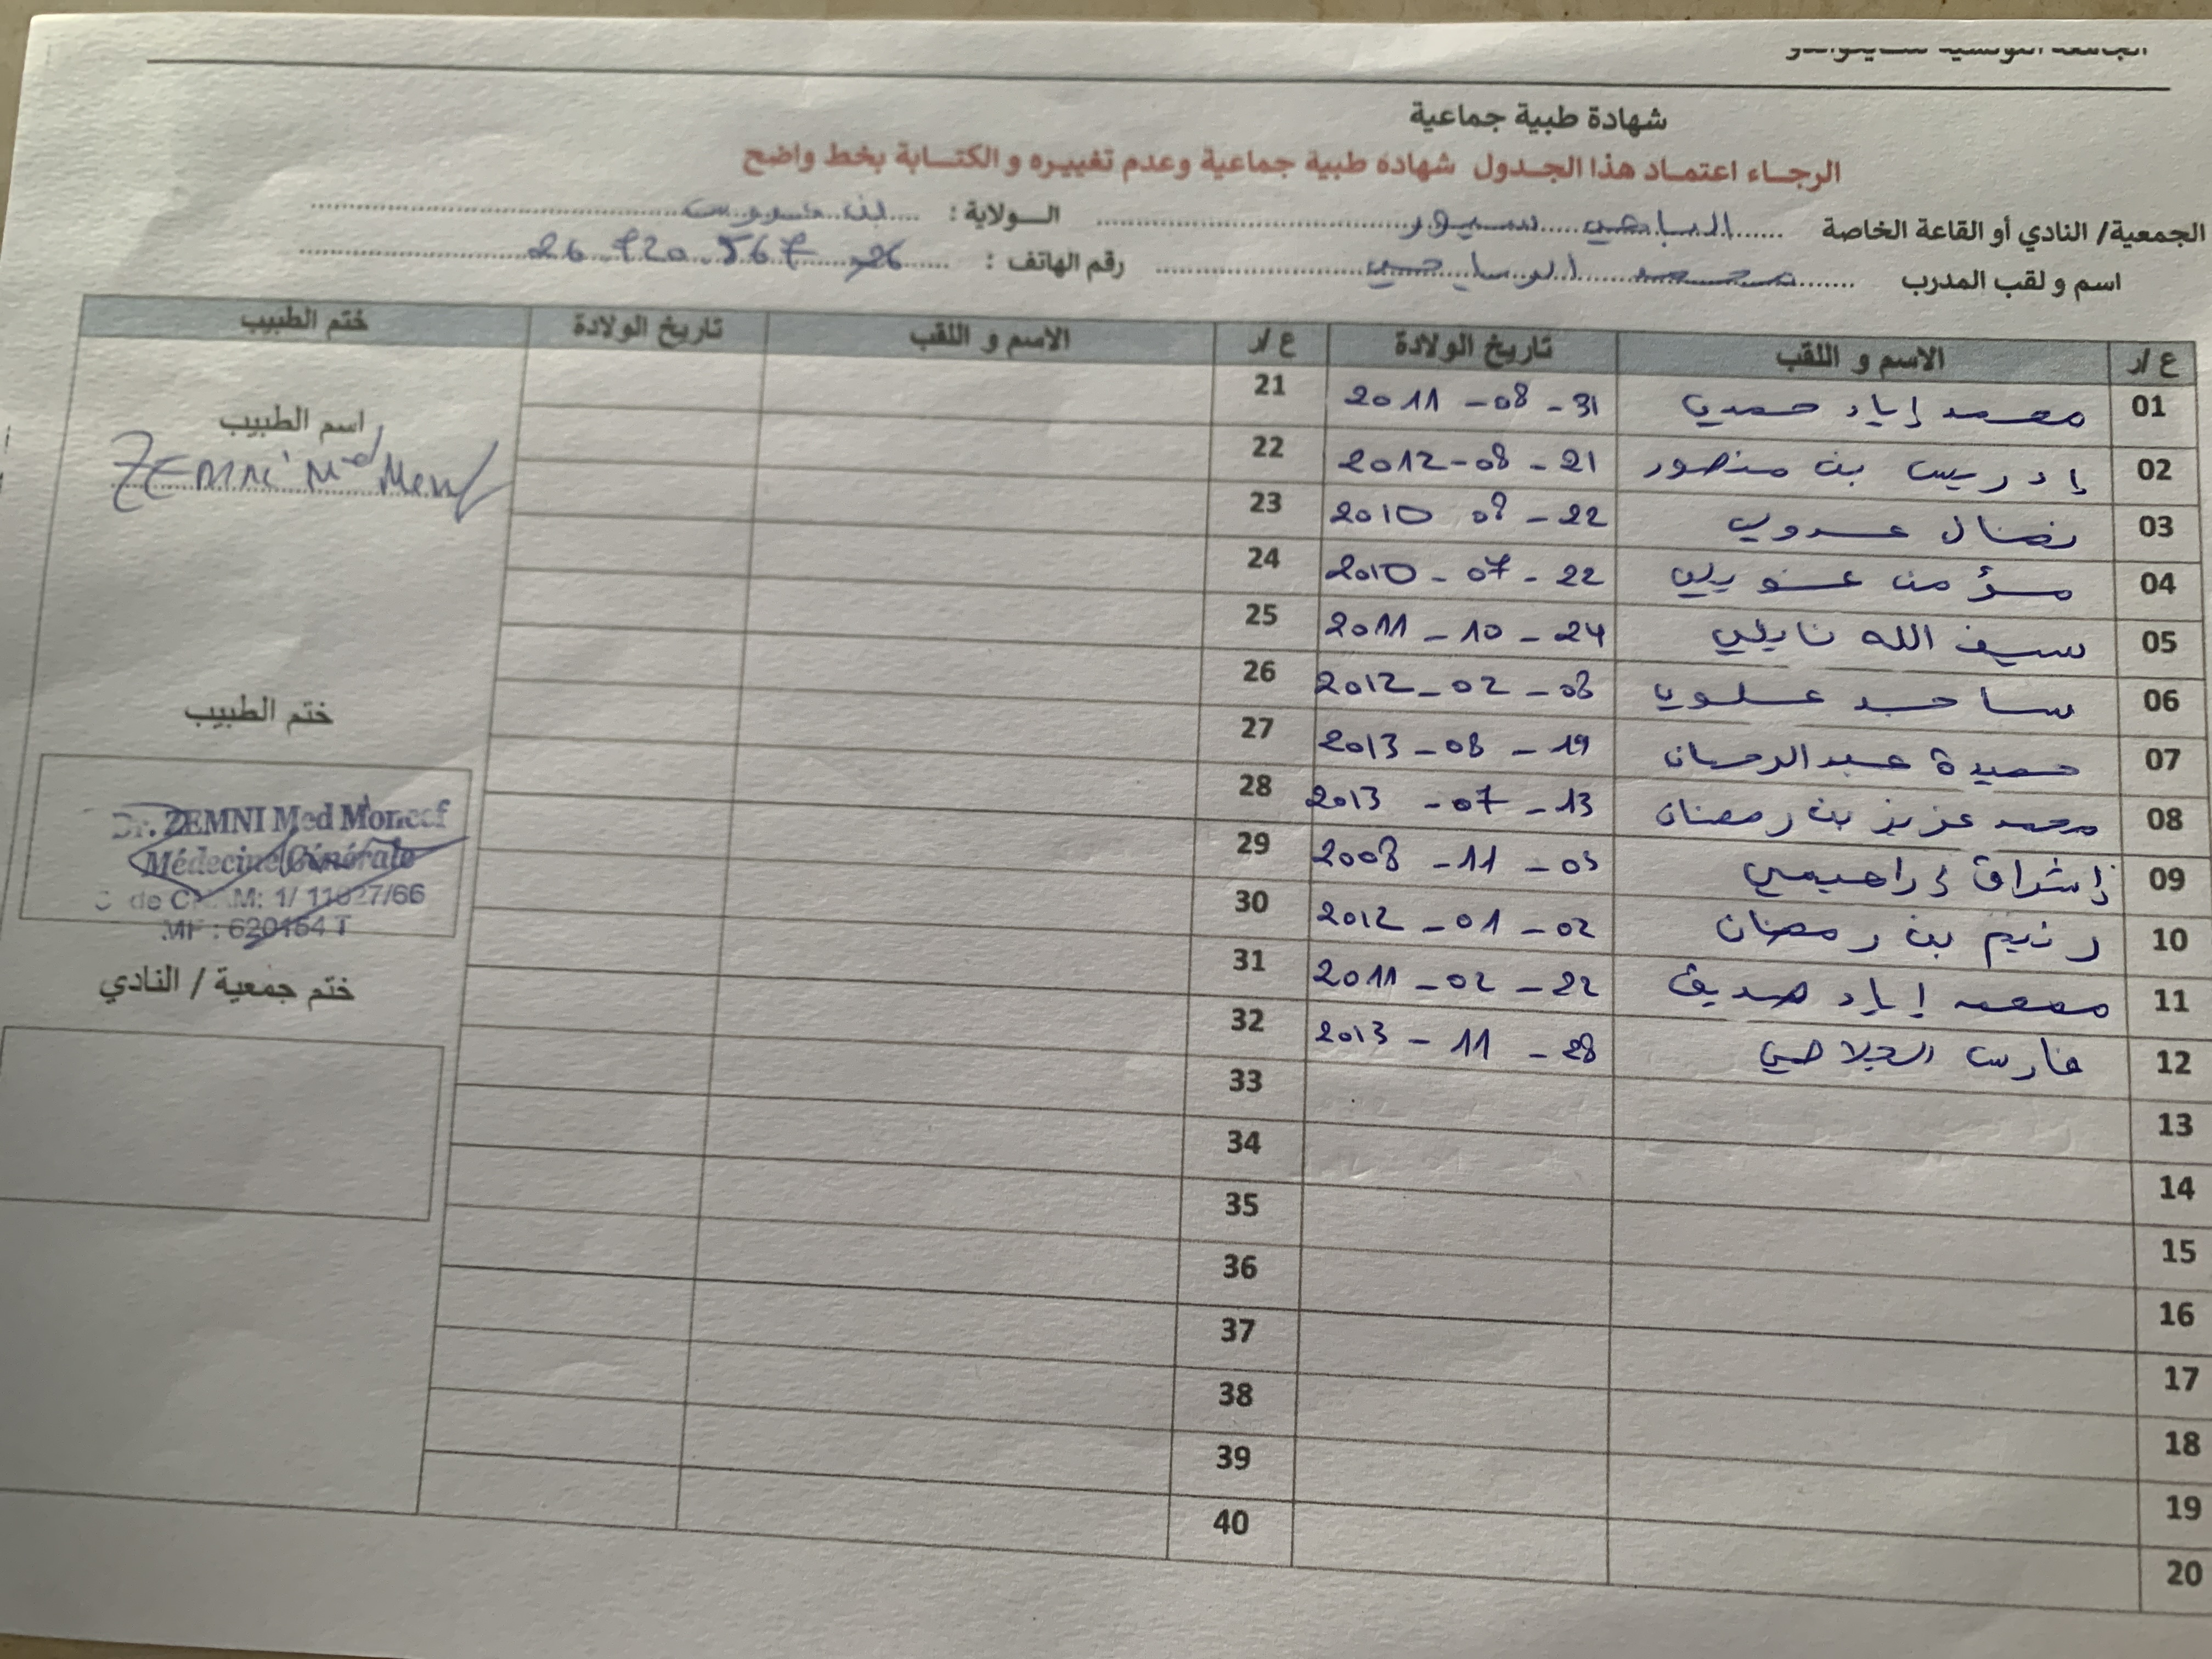 شهادة طبية جماعية
الرجاء اعتماد هذا الجدول شهادة طبية جماعية وعدم تغييره و الكتابة بخط واضح
الجمعية/ النادي أو القاعة الخاصة الولاية : بن عروس
اسم و لقب المدرب محمد رقم الهاتف : 26.720.567
ع/ر الاسم و اللقب تاريخ الولادة ع/ر الاسم و اللقب تاريخ الولادة ختم الطبيب
01 محمد إياد حمدي 31 - 08 - 2011 21
02 إدريس بن منصور 21 - 08 - 2012 22
03 نضال عدوي 22 - 08 2010 23
04 مؤمن 22 - 07 - 2010 24
05 سيف الله نايلي 24 - 10 - 2011 25
06 08 - 02 - 2012 26
07 حميدة عبد الرحمان 19 - 08 - 2013 27
08 محمد عزيز بن رمضان 13 - 07 - 2013 28
09 إشراق 11 - 2008 29
10 رنيم بن رمضان 02 - 01 - 2012 30
11 محمد إياد صديق 22 - 02 - 2011 31
12 فارس الجلاصي 28 - 11 - 2013 32
13 33
14 34
15 35
16 36
17 37
18 38
19 39
20 40
اسم الطبيب
ZEMNI Md
ختم الطبيب
Dr. ZEMNI Med Moncef
Médecine Générale
de 1/ 11027/66
MF : 620154 T
ختم جمعية / النادي